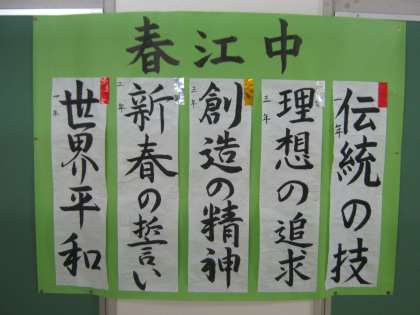 春江中
伝統の技
年
理想の追求
三年
創造の精神
三年
新春の誓い
二年
世界平和
一年